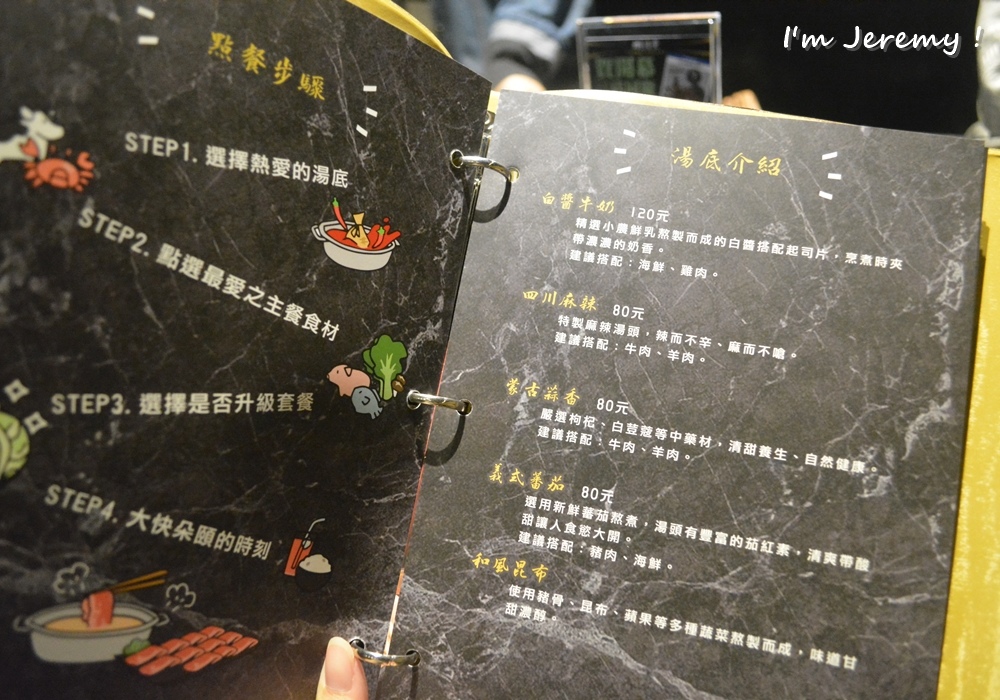 I'm Jeremy !
點餐步驟
STEP1. 選擇熱愛的湯底
STEP2. 點選最愛之主餐食材
STEP3. 選擇是否升級套餐
STEP4. 大快朵頤的時刻
湯底介紹
白醬牛奶 120元
精選小農鮮乳熬製而成的白醬搭配起司片，烹煮時夾
帶濃濃的奶香。
建議搭配：海鮮、雞肉。
四川麻辣 80元
特製麻辣湯頭，辣而不辛、麻而不嗆。
建議搭配：牛肉、羊肉。
蒙古蒜香 80元
嚴選枸杞、白荳蔻等中藥材，清甜養生、自然健康。
建議搭配：牛肉、羊肉。
義式蕃茄 80元
選用新鮮蕃茄熬煮，湯頭有豐富的茄紅素，清爽帶酸
甜讓人食慾大開。
建議搭配：豬肉、海鮮。
和風昆布
使用豬骨、昆布、蘋果等多種蔬菜熬製而成，味道甘
甜濃醇。